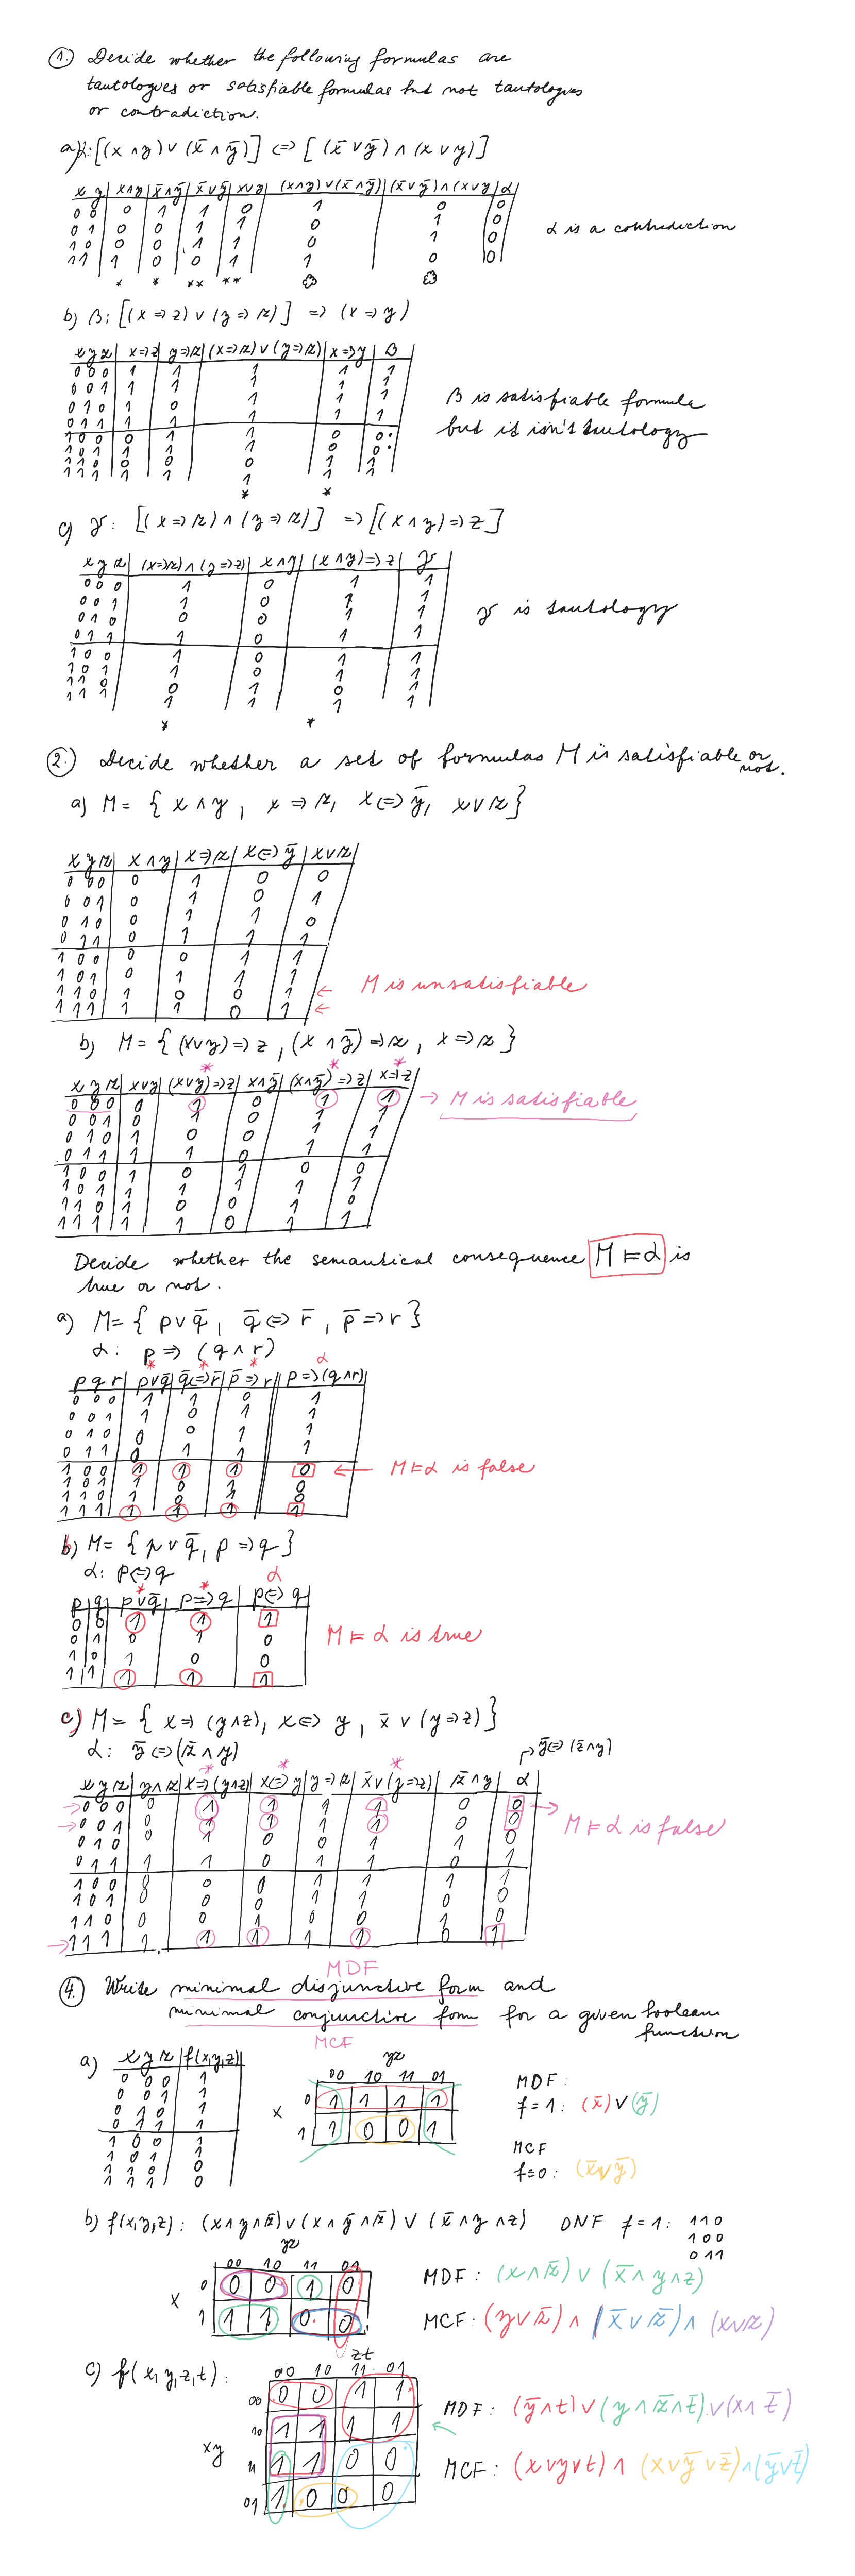 1. Decide whether the following formulas are
tautologyes or satisfiable formulas but not tautologyes
or contradiction.
a) α: [(x ∧ y) ∨ (x̄ ∧ ȳ)] <=> [(x̄ ∨ ȳ) ∧ (x ∨ y)]
x y | x∧y | x̄∧ȳ | x̄∨ȳ | x∨y | (x∧y)∨(x̄∧ȳ) | (x̄∨ȳ)∧(x∨y) | α
0 0 | 0 | 1 | 1 | 0 | 1 | 0 | 0
0 1 | 0 | 0 | 1 | 1 | 0 | 1 | 0
1 0 | 0 | 0 | 1 | 1 | 0 | 1 | 0
1 1 | 1 | 0 | 0 | 1 | 1 | 0 | 0
* * ** **
α is a contradiction
b) β: [(x => z) ∨ (y => z)] => (x => y)
x y z | x=>z | y=>z | (x=>z) ∨ (y=>z) | x=>y | β
0 0 0 | 1 | 1 | 1 | 1 | 1
0 0 1 | 1 | 1 | 1 | 1 | 1
0 1 0 | 1 | 0 | 1 | 1 | 1
0 1 1 | 1 | 1 | 1 | 1 | 1
1 0 0 | 0 | 1 | 1 | 0 | 0
1 0 1 | 1 | 1 | 1 | 0 | 0
1 1 0 | 0 | 0 | 0 | 1 | 1
1 1 1 | 1 | 1 | 1 | 1 | 1
* *
β is satisfiable formula
but it isn't tautology
c) γ: [(x => z) ∧ (y => z)] => [(x ∧ y) => z]
x y z | (x=>z) ∧ (y=>z) | x∧y | (x∧y)=>z | γ
0 0 0 | 1 | 0 | 1 | 1
0 0 1 | 1 | 0 | 1 | 1
0 1 0 | 0 | 0 | 1 | 1
0 1 1 | 1 | 0 | 1 | 1
1 0 0 | 1 | 0 | 1 | 1
1 0 1 | 1 | 0 | 1 | 1
1 1 0 | 0 | 1 | 0 | 1
1 1 1 | 1 | 1 | 1 | 1
* *
γ is tautology
2. Decide whether a set of formulas M is satisfiable or
not.
a) M = { x ∧ y, x => z, x <=> ȳ, x ∨ z }
x y z | x∧y | x=>z | x<=>ȳ | x∨z
0 0 0 | 0 | 1 | 0 | 0
0 0 1 | 0 | 1 | 0 | 1
0 1 0 | 0 | 1 | 1 | 0
0 1 1 | 0 | 1 | 1 | 1
1 0 0 | 0 | 0 | 1 | 1
1 0 1 | 0 | 1 | 1 | 1
1 1 0 | 1 | 0 | 0 | 1 ←
1 1 1 | 1 | 1 | 0 | 1 ←
M is unsatisfiable
b) M = { (x∨y) => z, (x ∧ ȳ) => z, x => z }
* * *
x y z | x∨y | (x∨y)=>z | x∧ȳ | (x∧ȳ)=>z | x=>z
0 0 0 | 0 | 1 | 0 | 1 | 1 → M is satisfiable
0 0 1 | 0 | 1 | 0 | 1 | 1
0 1 0 | 1 | 0 | 0 | 1 | 1
0 1 1 | 1 | 1 | 0 | 1 | 1
1 0 0 | 1 | 0 | 1 | 0 | 0
1 0 1 | 1 | 1 | 1 | 1 | 1
1 1 0 | 1 | 0 | 0 | 1 | 0
1 1 1 | 1 | 1 | 0 | 1 | 1
Decide whether the semantical consequence M ⊨ α is
true or not.
a) M = { p ∨ q̄, q̄ <=> r̄, p̄ => r }
α: p => (q ∧ r)
* * * α
p q r | p∨q̄ | q̄<=>r̄ | p̄=>r | p=>(q∧r)
0 0 0 | 1 | 1 | 0 | 1
0 0 1 | 1 | 0 | 1 | 1
0 1 0 | 0 | 0 | 1 | 1
0 1 1 | 0 | 1 | 1 | 1
1 0 0 | 1 | 1 | 1 | 0 ← M ⊨ α is false
1 0 1 | 1 | 0 | 1 | 0
1 1 0 | 1 | 0 | 1 | 0
1 1 1 | 1 | 1 | 1 | 1
b) M = { p ∨ q̄, p => q }
α: p <=> q
* * α
p | q | p∨q̄ | p=>q | p<=>q
0 | 0 | 1 | 1 | 1
0 | 1 | 0 | 1 | 0
1 | 0 | 1 | 0 | 0
1 | 1 | 1 | 1 | 1
M ⊨ α is true
c) M = { x => (y∧z), x <=> y, x̄ ∨ (y => z) }
α: ȳ <=> (z̄ ∧ y)
ȳ <=> (z̄∧y)
* * *
x y z | y∧z | x=>(y∧z) | x<=>y | y=>z | x̄∨(y=>z) | z̄∧y | α
→ 0 0 0 | 0 | 1 | 1 | 1 | 1 | 0 | 0 →
→ 0 0 1 | 0 | 1 | 1 | 1 | 1 | 0 | 0
0 1 0 | 0 | 1 | 0 | 0 | 1 | 1 | 0
0 1 1 | 1 | 1 | 0 | 1 | 1 | 0 | 1
1 0 0 | 0 | 0 | 0 | 1 | 1 | 0 | 0
1 0 1 | 0 | 0 | 0 | 1 | 1 | 0 | 0
1 1 0 | 0 | 0 | 1 | 0 | 0 | 1 | 0
→ 1 1 1 | 1 | 1 | 1 | 1 | 1 | 0 | 1
M ⊨ α is false
MDF
4. Write minimal disjunctive form and
minimal conjunctive form for a given boolean
function
MCF
a) x y z | f(x,y,z)
0 0 0 | 1
0 0 1 | 1
0 1 0 | 1
0 1 1 | 1
1 0 0 | 1
1 0 1 | 1
1 1 0 | 0
1 1 1 | 0
yz
00 10 11 01
x
0 | 1 | 1 | 1 | 1
1 | 1 | 0 | 0 | 1
MDF:
f=1: (x̄) ∨ (ȳ)
MCF
f=0: (x̄∨ȳ)
b) f(x,y,z): (x∧y∧z̄) ∨ (x∧ȳ∧z̄) ∨ (x̄∧y∧z) DNF f=1: 110
100
011
yz
00 10 11 01
x
0 | 0 | 0 | 1 | 0
1 | 1 | 1 | 0 | 0
MDF: (x∧z̄) ∨ (x̄∧y∧z)
MCF: (y∨z̄) ∧ (x̄∨z̄) ∧ (x∨z)
c) f(x,y,z,t):
zt
00 10 11 01
xy
00 | 0 | 0 | 1 | 1
10 | 1 | 1 | 1 | 1
11 | 1 | 1 | 0 | 0
01 | 1 | 0 | 0 | 0
MDF: (ȳ∧t) ∨ (y∧z̄∧t̄) ∨ (x∧t̄)
MCF: (x∨y∨t) ∧ (x∨ȳ∨z̄) ∧ (ȳ∨t̄)